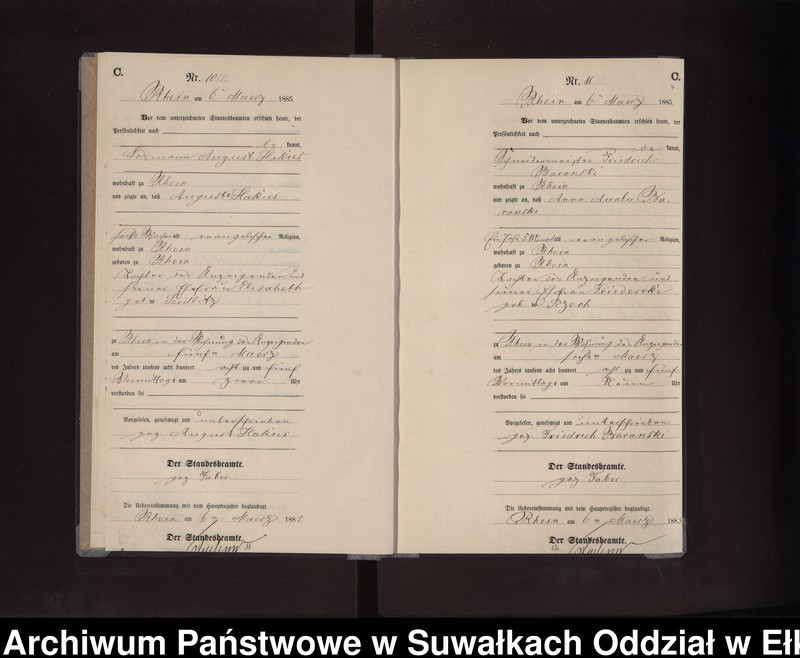 C.
Nr. 10
Rhein am 6ten Maerz 1885.
Vor dem unterzeichneten Standesbeamten erschien heute, der
Persönlichkeit nach
be kannt,
August Hakius
wohnhaft zu Rhein
und zeigte an, daß Auguste Hakius
sechs Wochen alt evangelischer Religion,
wohnhaft zu Rhein
geboren zu Rhein
Tochter des Anzeigenden und
seiner Ehefrau Elisabeth
geb. Seidlitz
zu Rhein in der Wohnung des Anzeigenden
am fünften Maerz
des Jahres tausend acht hundert acht zig und fünf
Vormittags um zwei Uhr
verstorben sei
Vorgelesen, genehmigt und unterschrieben
gez August Hakius
Der Standesbeamte.
gez Faber
Die Uebereinstimmung mit dem Hauptregister beglaubigt.
Rhein am 6ten Maerz 1885
Der Standesbeamte.
Nr. 11
C.
Rhein am 6ten Maerz 1885.
Vor dem unterzeichneten Standesbeamten erschien heute, der
Persönlichkeit nach
be kannt,
Schneidermeister Friedrich
Baranski
wohnhaft zu Rhein
und zeigte an, daß Anna Amalie Ba-
ranski
ein Jahr 5 Monat alt evangelischer Religion,
wohnhaft zu Rhein
geboren zu Rhein
Tochter des Anzeigenden und
seiner Ehefrau Friederike
geb.
zu Rhein in der Wohnung des Anzeigenden
am sechsten Maerz
des Jahres tausend acht hundert acht zig und fünf
Vormittags um Neun Uhr
verstorben sei
Vorgelesen, genehmigt und unterschrieben
gez Friedrich Baranski
Der Standesbeamte.
gez Faber
Die Uebereinstimmung mit dem Hauptregister beglaubigt.
Rhein am 6ten Maerz 1885
Der Standesbeamte.
Archiwum Państwowe w Suwałkach Oddział w Ełk